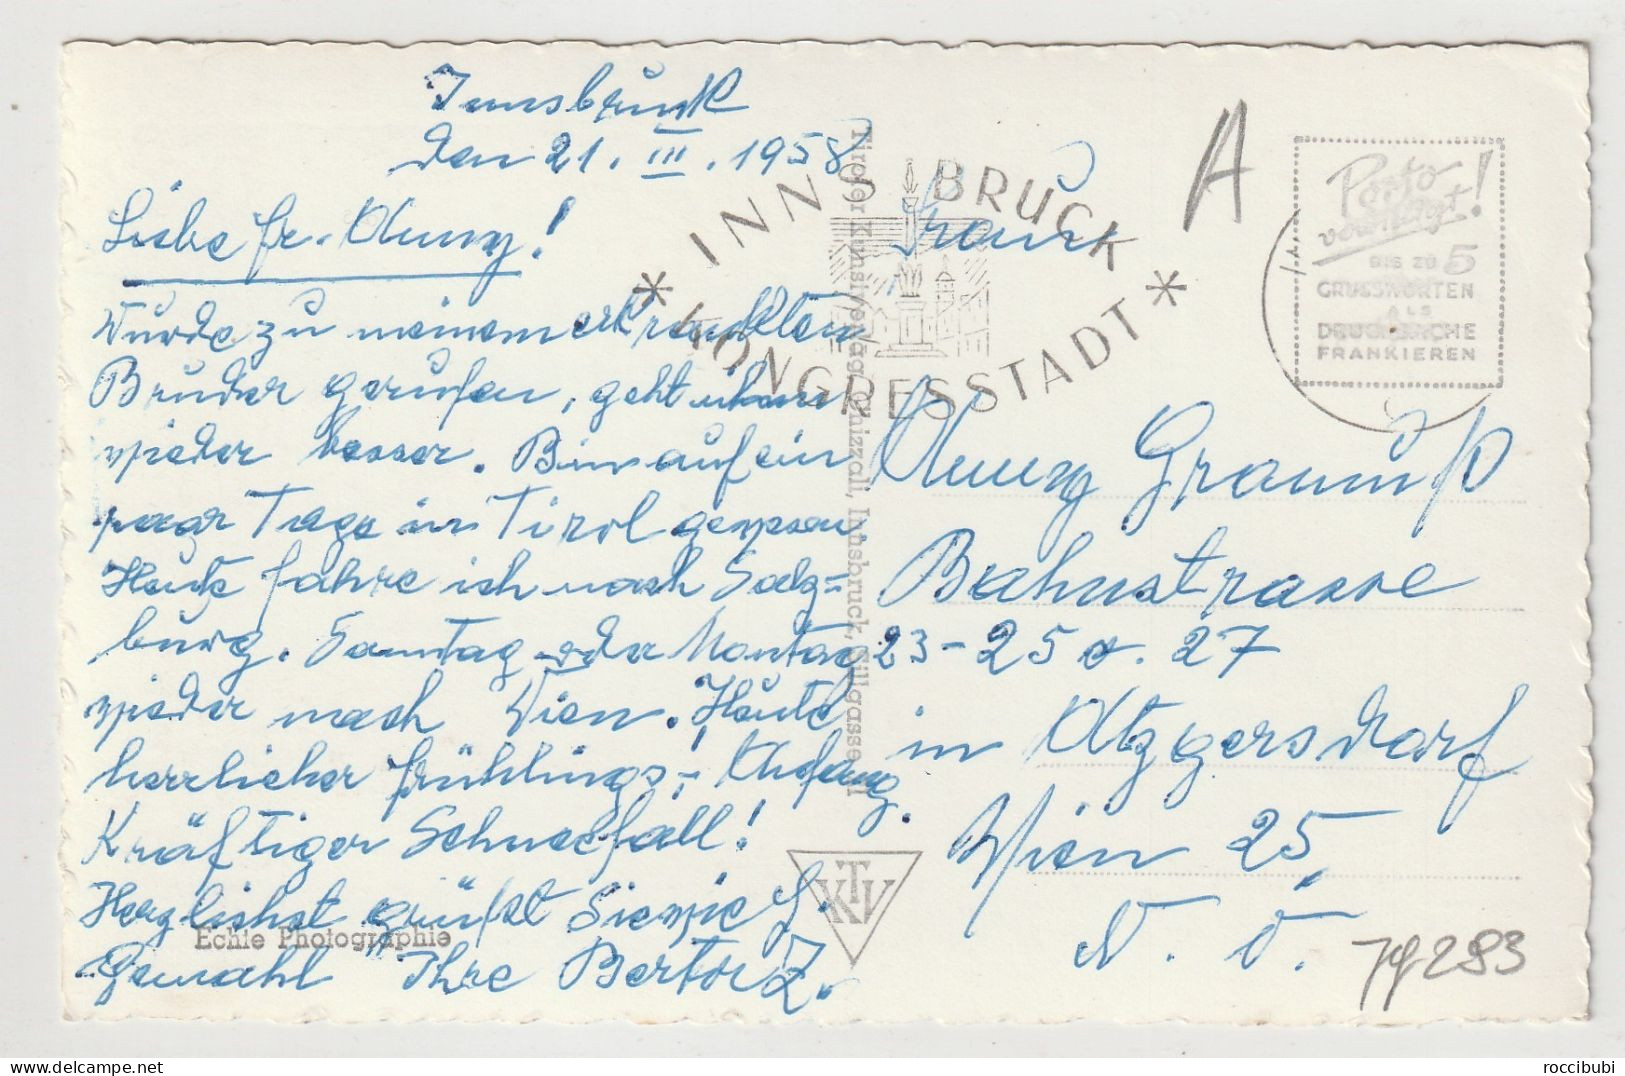 Innsbruck
den 21. III. 1958
Liebe Fr. Anny!
Wurde zu meinem erkrankten
Bruder gerufen, geht ihm
wieder besser. Bin auf ein
paar Tage in Tirol gewesen
Heute fahre ich nach Salz-
burg. Samstag oder Montag
wieder nach Wien. Heute
herrlicher Frühlings-Anfang.
Kräftiger Schneefall!
Herzlichst grüsst Sie wie H.
Gemahl Ihre Berta Z.
Echte Photographie
Tiroler Kunstverlag Chizzali, Innsbruck, Sillgasse 11
KTV
* INNSBRUCK *
KONGRESSSTADT
A
Porto
vermerkt!
BIS ZU 5
GRUSSWORTEN
ALS
DRUCKSACHE
FRANKIEREN
Frau
Anny
Bahnstrasse
23-25 o. 27
in Atzgersdorf
Wien 25,
N. Ö.
79283
roccibubi